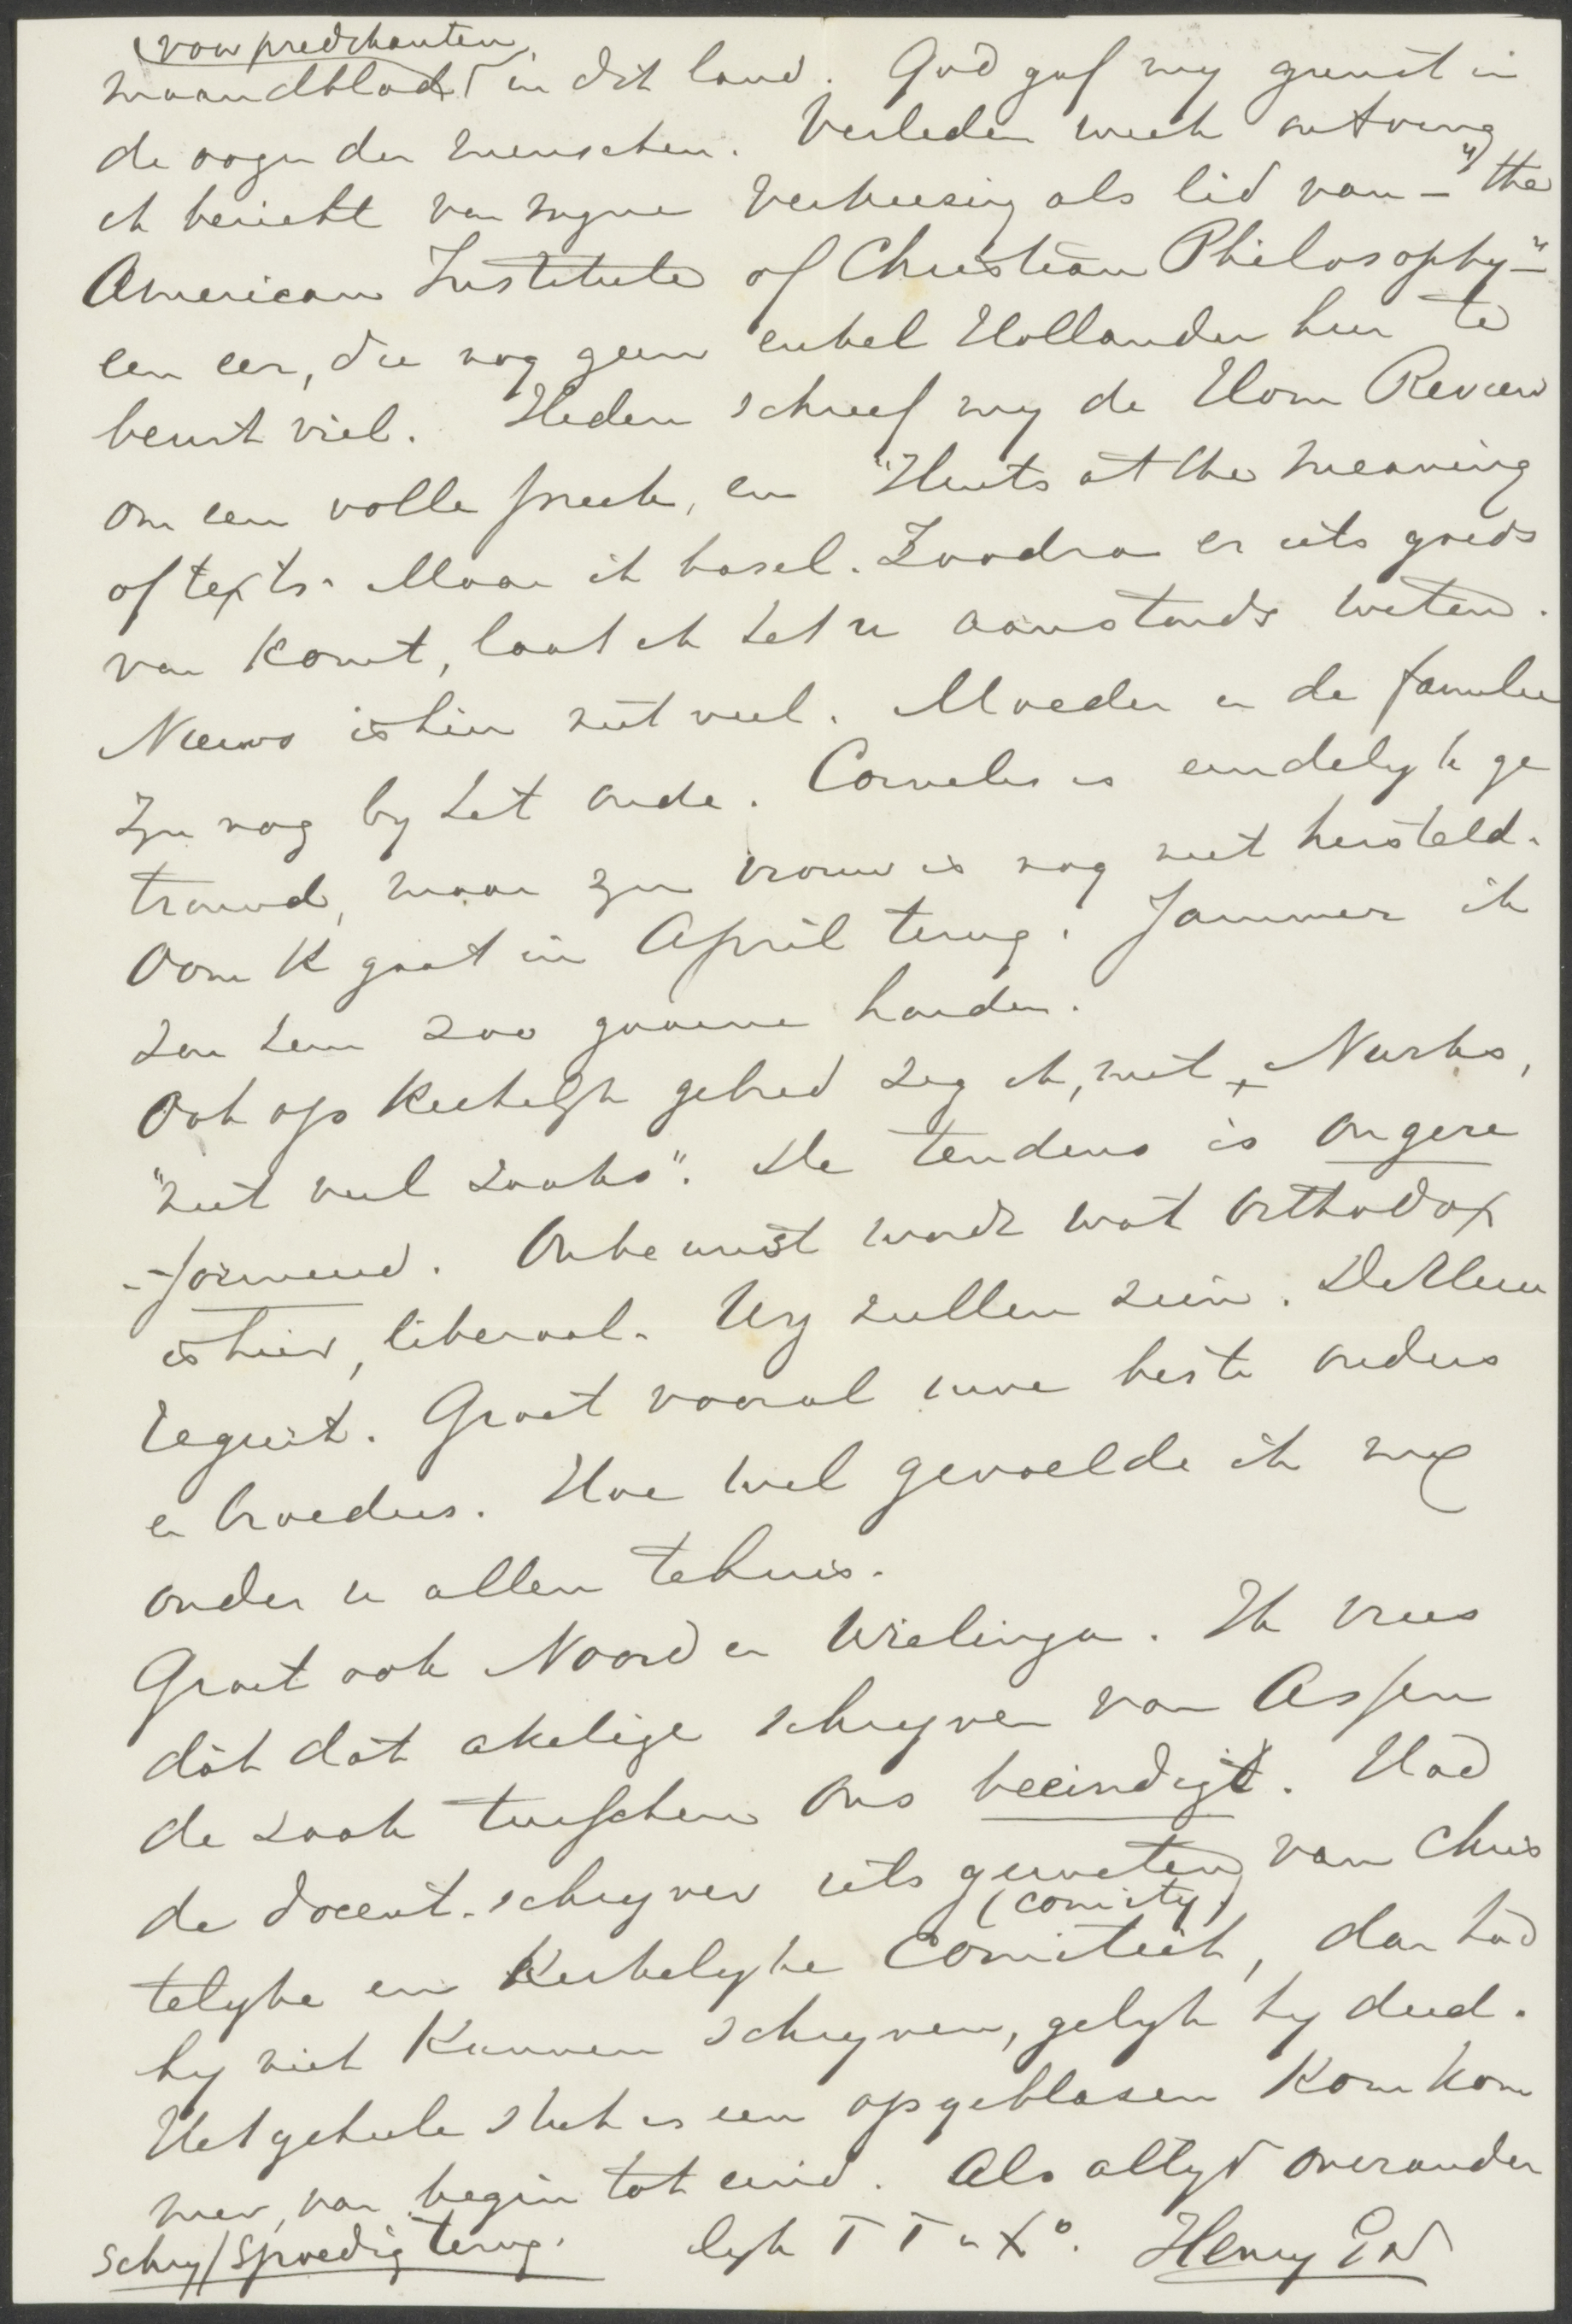 (voor predikanten)
maandblad in dit land. God gaf my gunst in
de oogen der menschen. Verleden week ontving
ik bericht van myne verkiesing als lid van – "the
American Institute of Christian Philosophy" –
een eer, die nog geen enkel Hollander hier te
beurt viel. Heden schreef my de Hom Review
om een volle preek, en "Hints at the meaning
of texts. Maar ik basel. Zoodra er iets goeds
van komt, laat ik het u aanstonds weten.
Nieuws is hier niet veel. Moeder en de familie
zyn nog by het oude. Cornelis is eindelyk ge
trouwd, maar zyn vrouw is nog niet hersteld.
Oom K gaat in April terug. Jammer ik
zou hem zoo gaarne houden.
Ook op Kerkelyk gebied zeg ik, met Nurks,
"niet veel zaaks". De tendens is ongere
-formeerd. Onbewust wordt wat orthodox
is hier, liberaal. Wy zullen zien. De Heer
regeert. Groet vooral uwe beste ouders
en broeders. Hoe wel gevoelde ik my
onder u allen tehuis.
Groet ook Noord en Wielinga. Ik vrees
dat dat akelige schryven van Assen
de zaak tusschen ons beeindigt. Had
de docent-schryver iets geweten van Chris
(comity)
telyke en Kerkelyke Comiteit, dan had
hy niet kunnen schryven, gelyk hy deed.
Het geheele stuk is een opgeblasen Komkom
mer, van begin tot eind. Als altyd onverander
lyk T T
Henry
Schryf spoedig terug.